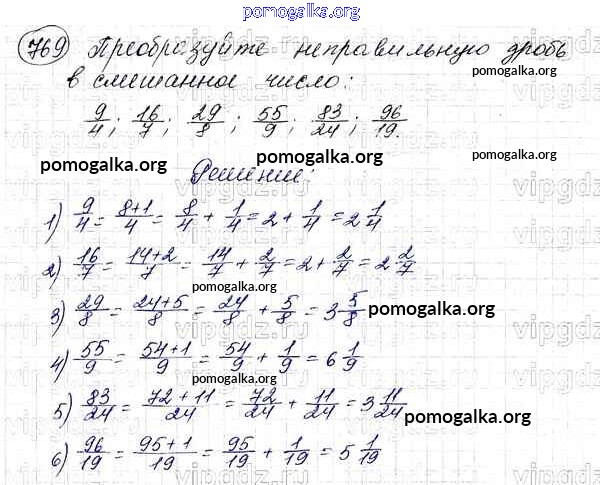 pomogalka.org
769 Преобразуйте неправильную дробь
pomogalka.org
в смешанное число:
9/4; 16/7; 29/8; 55/9; 83/24; 96/19.
pomogalka.org pomogalka.org pomogalka.org
Решение:
1) 9/4 = 8+1/4 = 8/4 + 1/4 = 2 + 1/4 = 2 1/4
2) 16/7 = 14+2/7 = 14/7 + 2/7 = 2 + 2/7 = 2 2/7
3) 29/8 = 24+5/8 = 24/8 + 5/8 = 3 5/8 pomogalka.org
4) 55/9 = 54+1/9 = 54/9 + 1/9 = 6 1/9
pomogalka.org
5) 83/24 = 72+11/24 = 72/24 + 11/24 = 3 11/24
pomogalka.org
6) 96/19 = 95+1/19 = 95/19 + 1/19 = 5 1/19